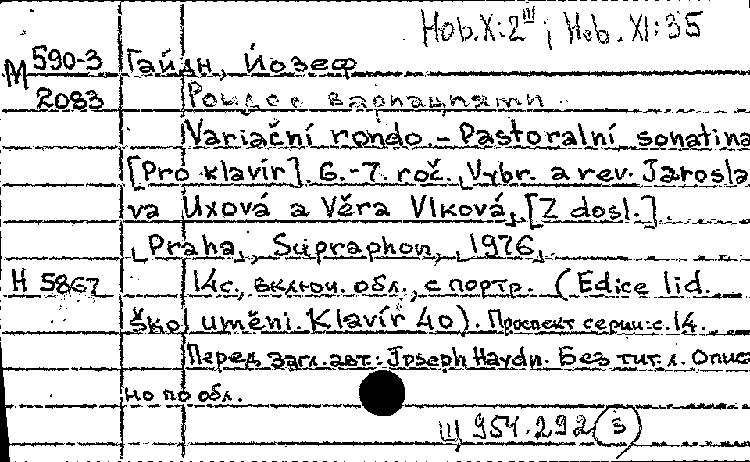 Hob.X:2 III ; Hob. XI:35
М 590-3 Гайдн, Йозеф
2083 Рондо с вариациями
Variační rondo.- Pastoralní sonatina
[Pro klavír]. 6.-7. roč. Vybr. a rev. Jarosla
va Uxová a Věra Vlková, [Z dosl.]
Praha, Supraphon, 1976
Н 5867 14с., включ. обл., с портр. (Edice lid.
škol umění. Klavír 40). Проспект серии: с. 14.
Перед загл. авт.: Joseph Haydn. Без тит. л. Описа
но по обл.
Щ 954.292 (3)